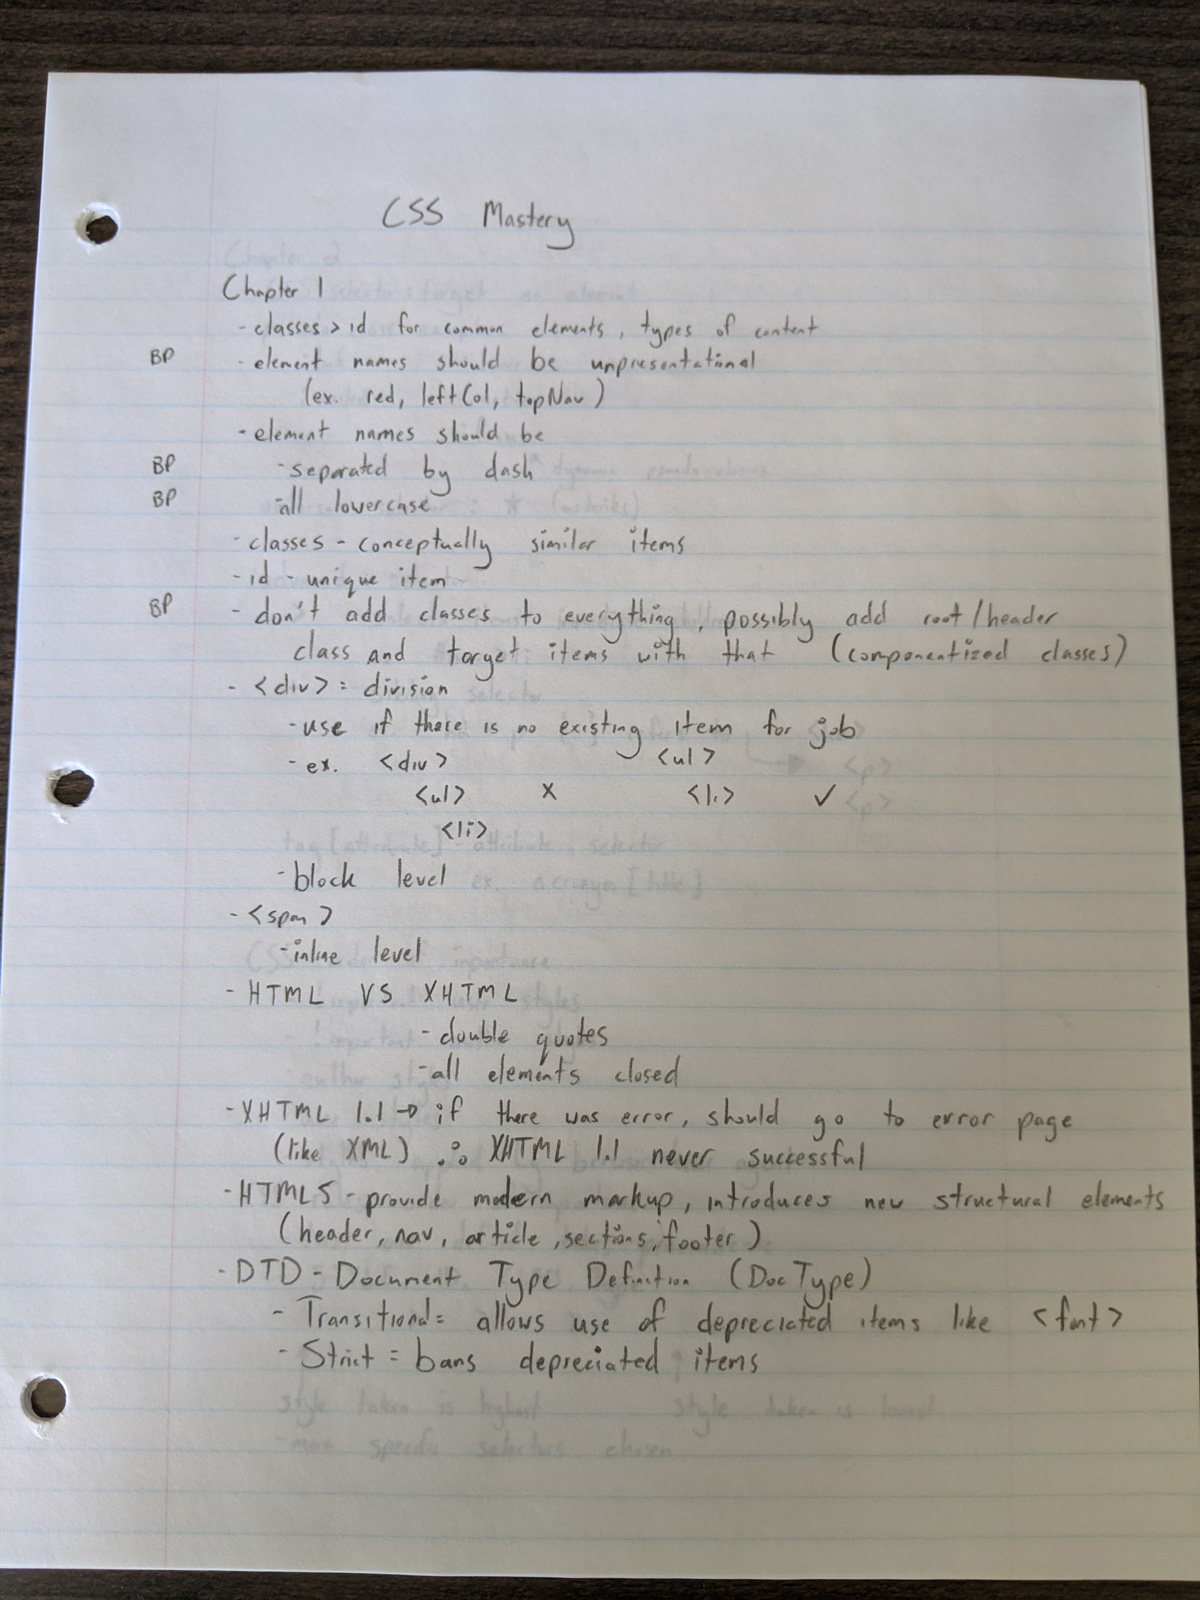 CSS Mastery
Chapter 1
- classes > id for common elements, types of content
BP - element names should be unpresentational
(ex. red, leftCol, topNav)
- element names should be
BP - separated by dash
BP - all lowercase
- classes - conceptually similar items
- id - unique item
BP - don't add classes to everything, possibly add root/header
class and target items with that (componentized classes)
- <div> = division
- use if there is no existing item for job
- ex. <div> <ul>
<ul> x <li> ✓
<li>
- block level
- <span>
- inline level
- HTML VS XHTML
- double quotes
- all elements closed
- XHTML 1.1 → if there was error, should go to error page
(like XML) ∴ XHTML 1.1 never successful
- HTML5 - provide modern markup, introduces new structural elements
(header, nav, article, sections, footer)
- DTD - Document Type Definition (DocType)
- Transitional = allows use of depreciated items like <font>
- Strict = bans depreciated items